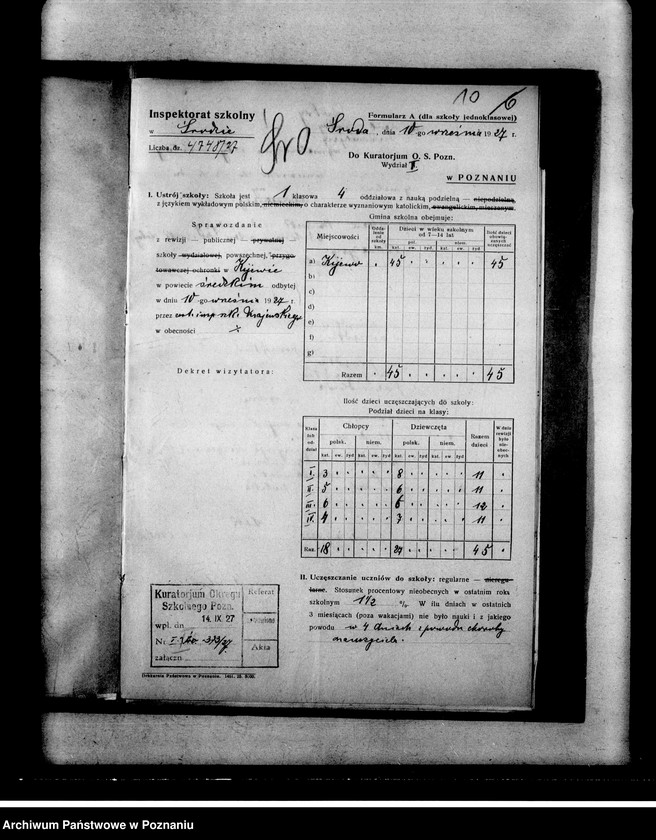 10 6
Inspektorat szkolny
w Środzie
Liczba dz. 4748/27
Formularz A (dla szkoły jednoklasowej)
Środa, dnia 10-go września 1927 r.
Do Kuratorjum O. S. Pozn.
Wydział I.
w POZNANIU
I. Ustrój szkoły: Szkoła jest 1 klasowa 4 oddziałowa z nauką podzielną — niepodzielną,
z językiem wykładowym polskim, niemieckim, o charakterze wyznaniowym katolickim, ewangelickim, mieszanym.
Gmina szkolna obejmuje:
Sprawozdanie
z rewizji — publicznej — prywatnej —
szkoły wydziałowej, powszechnej, przygo-
towawczej ochronki w Kijewie
w powiecie średzkim odbytej
w dniu 10-go września 1927 r.
przez
w obecności
Dekret wizytatora:
Miejscowości Oddalenie od szkoły km. Dzieci w wieku szkolnym od 7—14 lat Ilość dzieci
pol. niem.
kat. ew. żyd kat. ew. żyd
a) Kijewo 45 45
b)
c)
d)
e)
f)
g)
Razem 45 45
Ilość dzieci uczęszczających do szkoły:
Podział dzieci na klasy:
Klasa lub oddział Chłopcy Dziewczęta Razem dzieci W dniu rewizji było nieobecnych
polsk. niem. polsk. niem.
kat. ew. żyd kat. ew. żyd kat. ew. żyd kat. ew. żyd
I. 3 8 11
II. 5 6 11
III. 6 6 12
IV. 4 7 11
Raz. 18 27 45
II. Uczęszczanie uczniów do szkoły: regularne — nieregu-
larne. Stosunek procentowy nieobecnych w ostatnim roku
szkolnym 1½ %. W ilu dniach w ostatnich
3 miesiącach (poza wakacjami) nie było nauki i z jakiego
powodu w 4 dniach z powodu choroby
nauczyciela.
Kuratorjum Okręgu
Szkolnego Pozn.
wpł. dn. 14. IX. 27
Nr.
załączn.
Referat
Akta
Drukarnia Państwowa w Poznaniu.
Archiwum Państwowe w Poznaniu